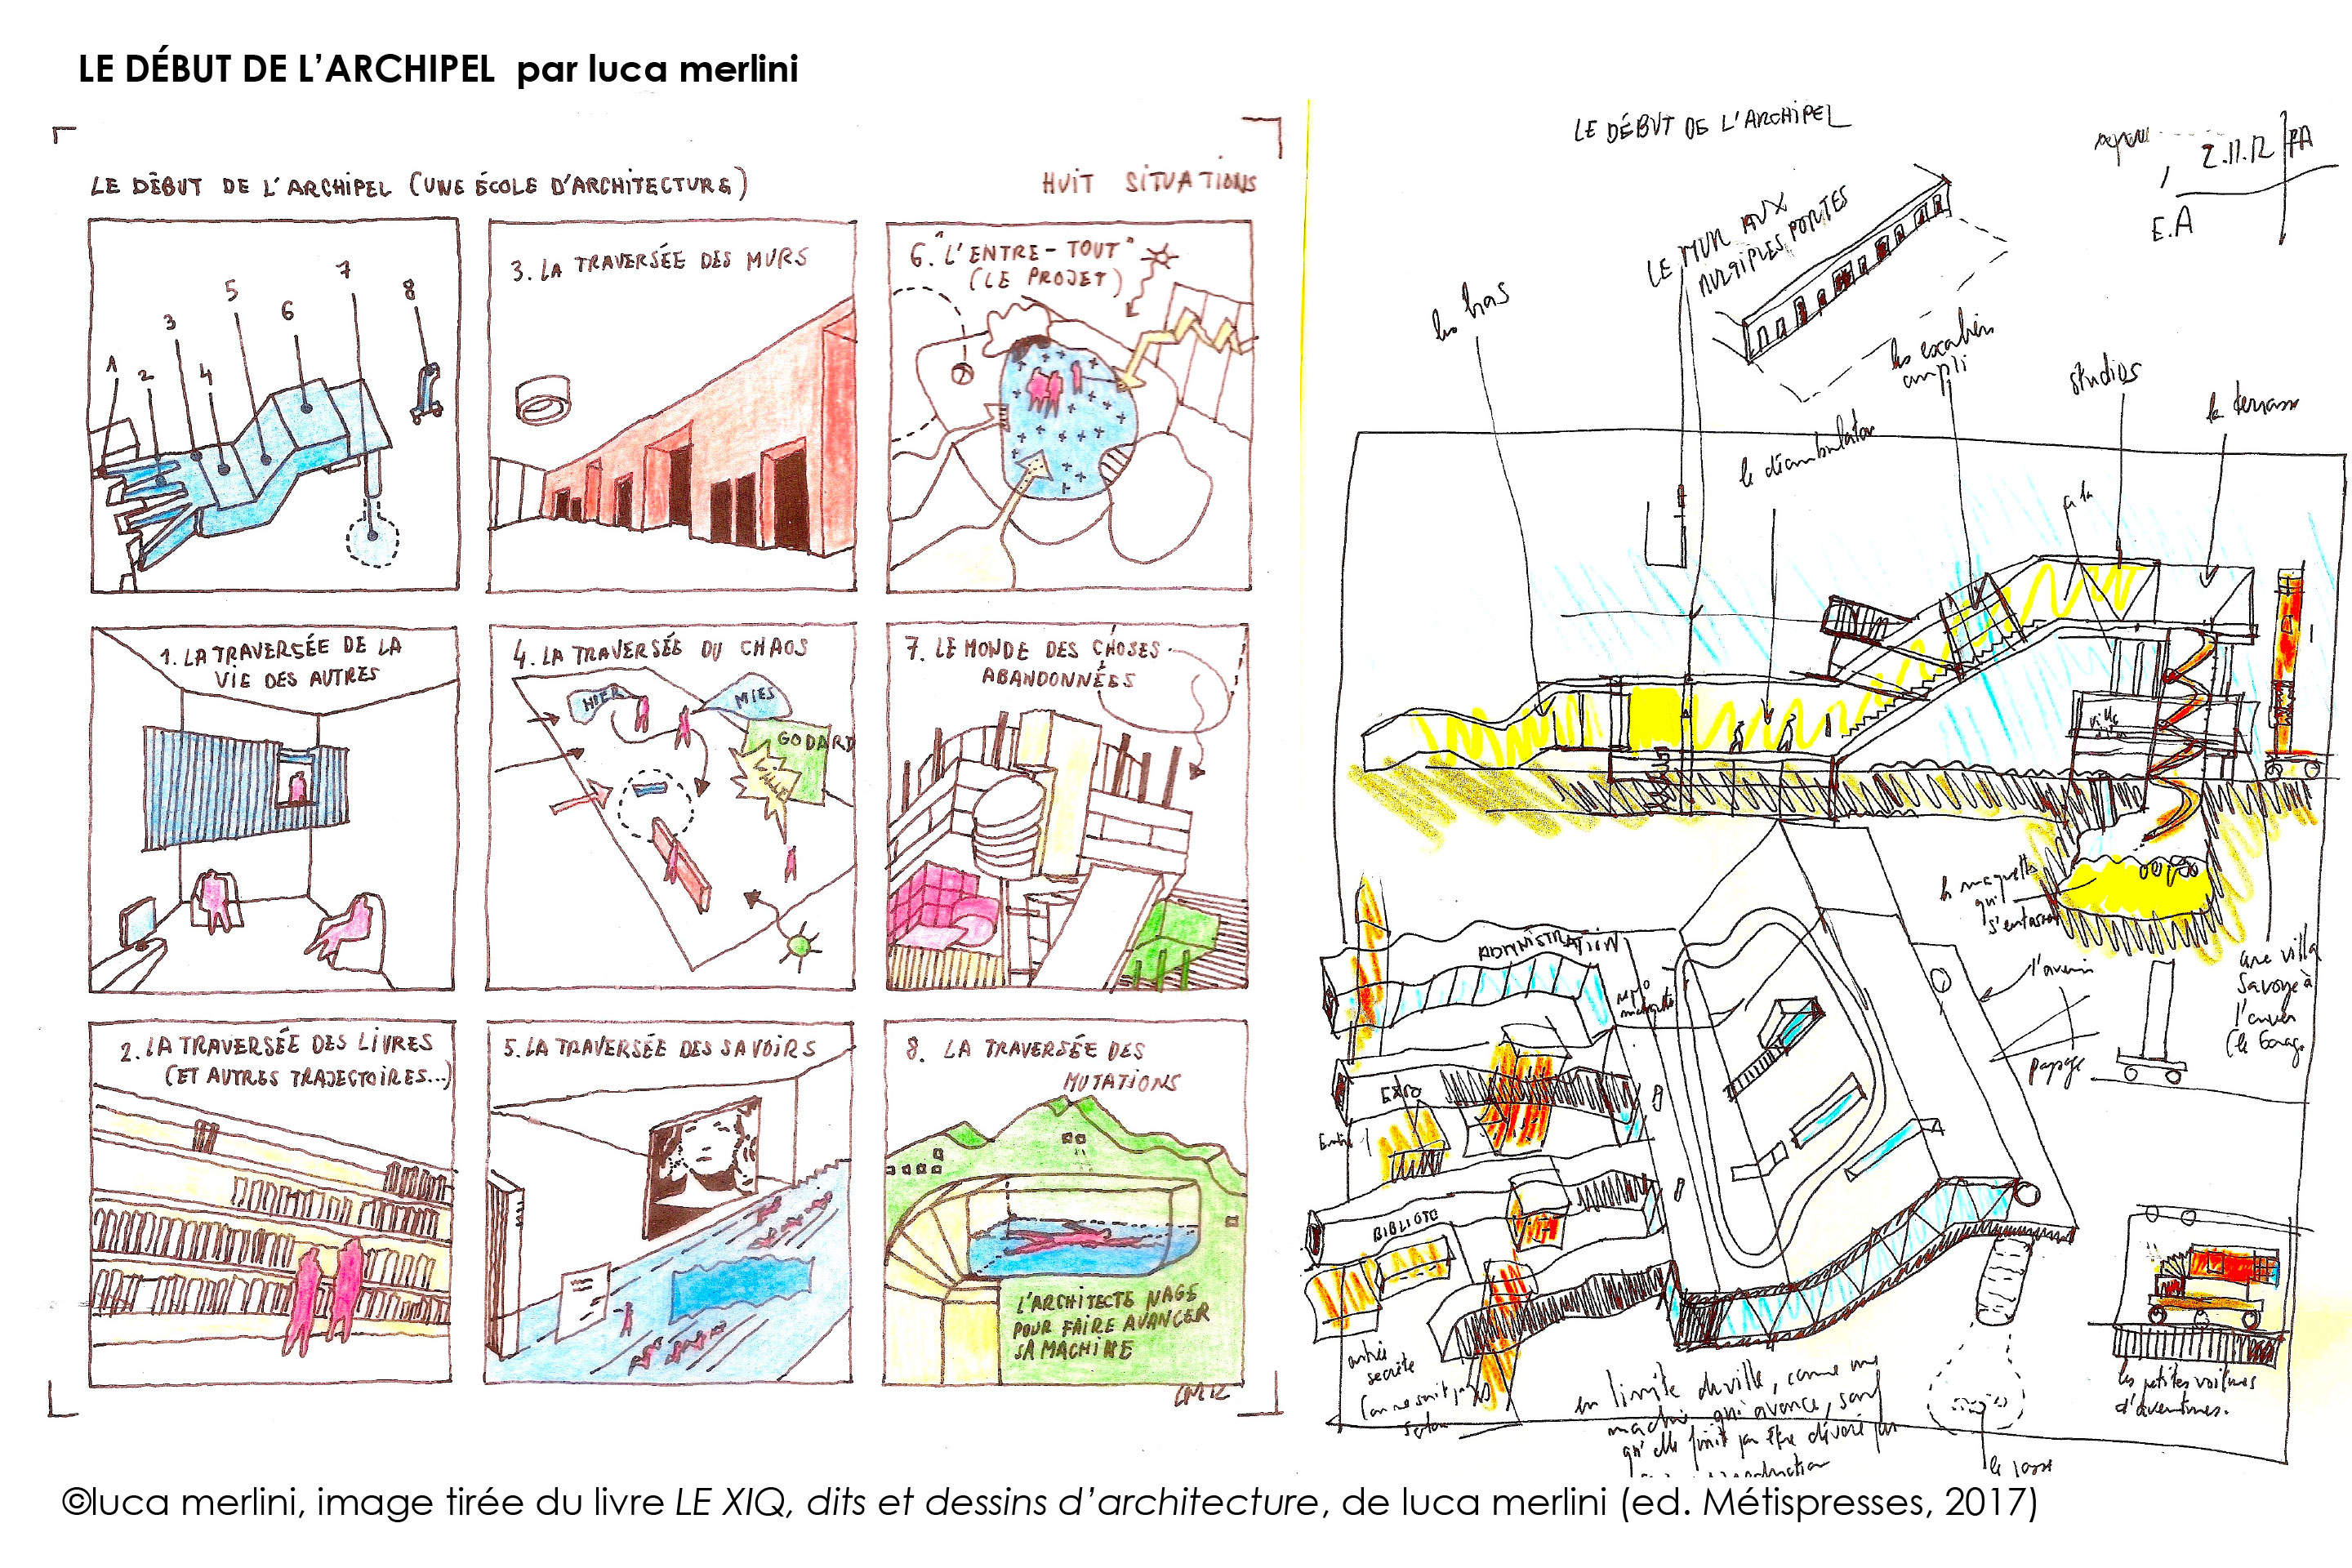 LE DÉBUT DE L'ARCHIPEL par luca merlini
LE DÉBUT DE L'ARCHIPEL (UNE ÉCOLE D'ARCHITECTURE)
HUIT SITUATIONS
1
2
3
4
5
6
7
8
3. LA TRAVERSÉE DES MURS
6. "L'ENTRE-TOUT"
(LE PROJET)
1. LA TRAVERSÉE DE LA
VIE DES AUTRES
4. LA TRAVERSÉE DU CHAOS
HIER
MIES
GODARD
7. LE MONDE DES CHOSES
ABANDONNÉES
2. LA TRAVERSÉE DES LIVRES
(ET AUTRES TRAJECTOIRES...)
5. LA TRAVERSÉE DES SAVOIRS
8. LA TRAVERSÉE DES
MUTATIONS
L'ARCHITECTE NAGE
POUR FAIRE AVANCER
SA MACHINE
LE DÉBUT DE L'ARCHIPEL
2.11.12
PA
E.A
LE MUR AUX
MULTIPLES PORTES
les bras
les escaliers
ampli
studios
la terrasse
le déambulatoir
villa
la maquettes
qui
s'entassent
une villa
Savoye à
l'envers
(le Garage
ADMINISTRATION
l'avenir
EXPO
BIBLIOTO
entrée
secrète
en limite de ville, comme une
machine qui avance, sans
qu'elle finit par être dévoré par
les petites voitures
d'aventures.
©luca merlini, image tirée du livre LE XIQ, dits et dessins d'architecture, de luca merlini (ed. Métispresses, 2017)